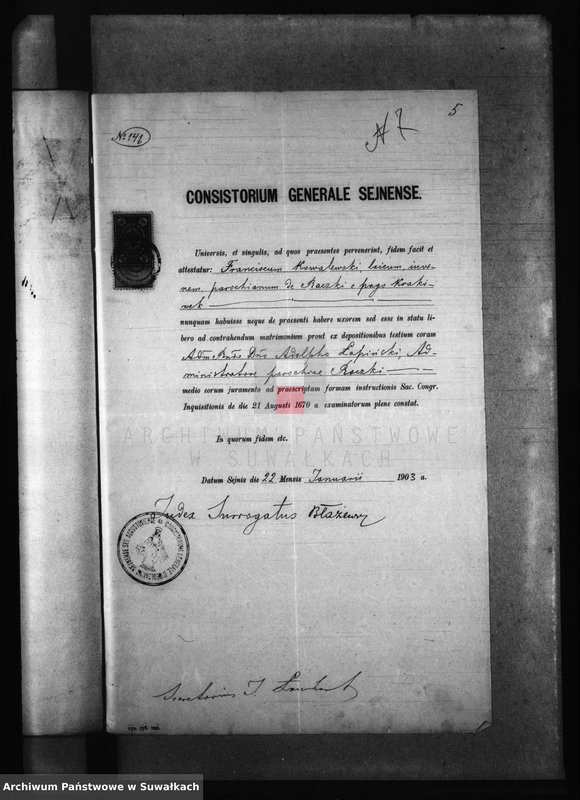 5
№ 141
N 7
CONSISTORIUM GENERALE SEJNENSE.
Universis, et singulis, ad quos praesentes pervenerint, fidem facit et
attestatur: Franciscum Kowalewski, laicum, iuve-
nem parochianum de Raczki e pago Krako-
wek
nunquam habuisse neque de praesenti habere uxorem sed esse in statu li-
bero ad contrahendum matrimonium prout ex depositionibus testium coram
Adm Rndo Dno Adolpho Łapiński, Ad-
ministratore parochiae Raczki
medio eorum juramento ad praescriptam formam instructionis Sac. Congr.
Inquisitionis de die 21 Augusti 1670 a. examinatorum plene constat.
ARCHIWUM PAŃSTWOWE
W SUWAŁKACH
In quorum fidem etc.
Datum Sejnis die 22 Mensis Januarii 1903 a.
Judex Surrogatus Błażewicz
Secretarius J.
Archiwum Państwowe w Suwałkach